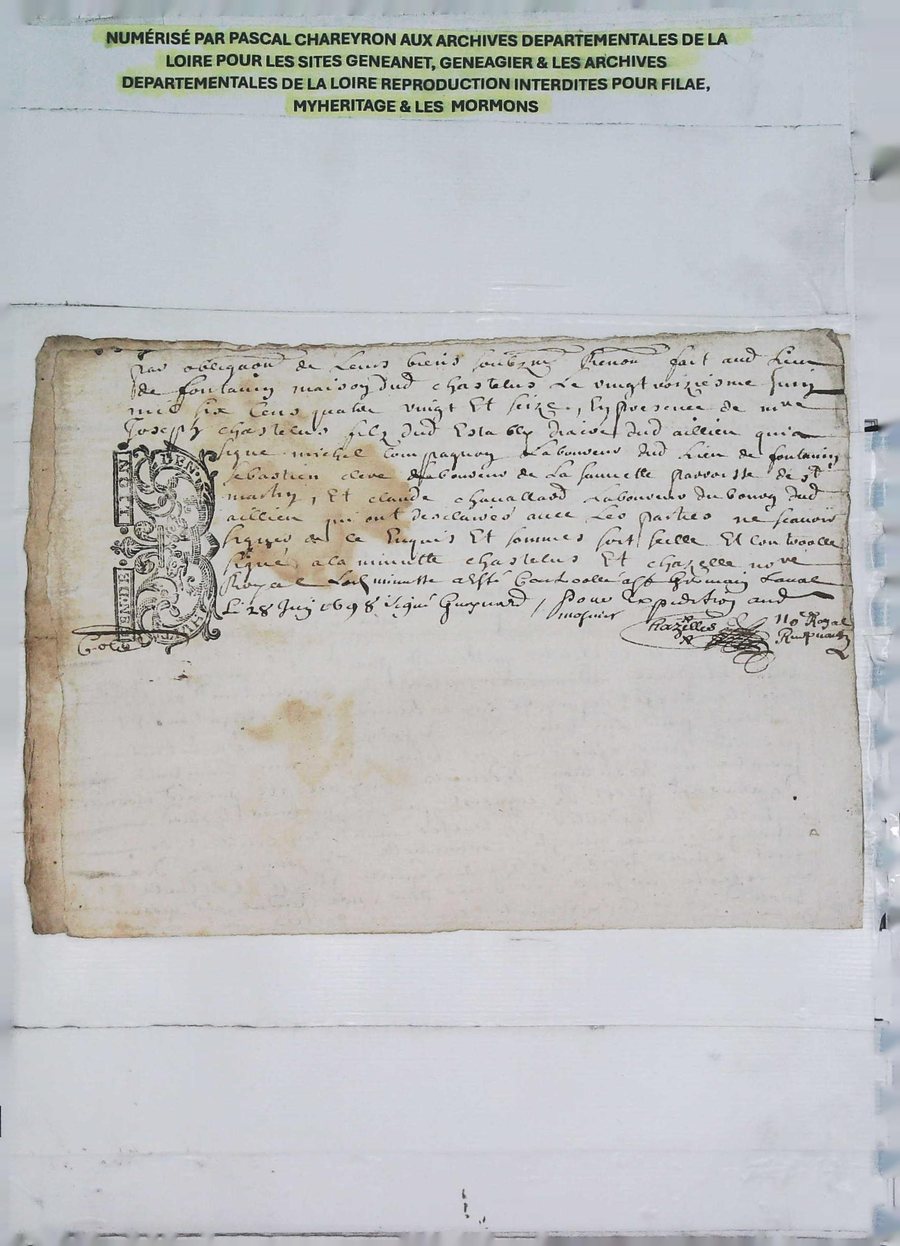 NUMÉRISÉ PAR PASCAL CHAREYRON AUX ARCHIVES DEPARTEMENTALES DE LA
LOIRE POUR LES SITES GENEANET, GENEAGIER & LES ARCHIVES
DEPARTEMENTALES DE LA LOIRE REPRODUCTION INTERDITES POUR FILAE,
MYHERITAGE & LES MORMONS
par obligaon de leurs biens soubzmon Renonon fait aud lieu
de fontanin maison dud chastelus le vingt troiziesme Juin
mil six cens quatre vingt et seize, en presence de
Joseph chastelus filz dud dud aillien qui a
signe michel Compagnon Laboureur dud lieu de fontanin
sebastien Laboureur de la parroisse de st
martin, Et claude chavallard Laboureur du bourg dud
aillieu qui ont desclaires avec les parties ne scavoir
signer de ce Enquis Et sommes soit selle Et controolle
signé a la minutte chastelus Et chazelle nore
Royal Lad minutte a Esté Controolle a st Germain Laval
Le 28 Juin 1698 signé / pour Expedition aud
Chazelles no Royal